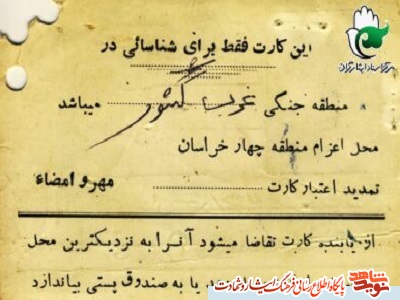 مرکز اسناد ایثارگران
این کارت فقط برای شناسائی در
منطقه جنگی غرب کشور میباشد
محل اعزام منطقه چهار خراسان
تمدید اعتبار کارت مهر و امضاء
از یابنده کارت تقاضا میشود آنرا به نزدیکترین محل
یا به صندوق پستی بیاندازد
نوید شاهد
پایگاه اطلاع رسانی فرهنگ ایثار و شهادت